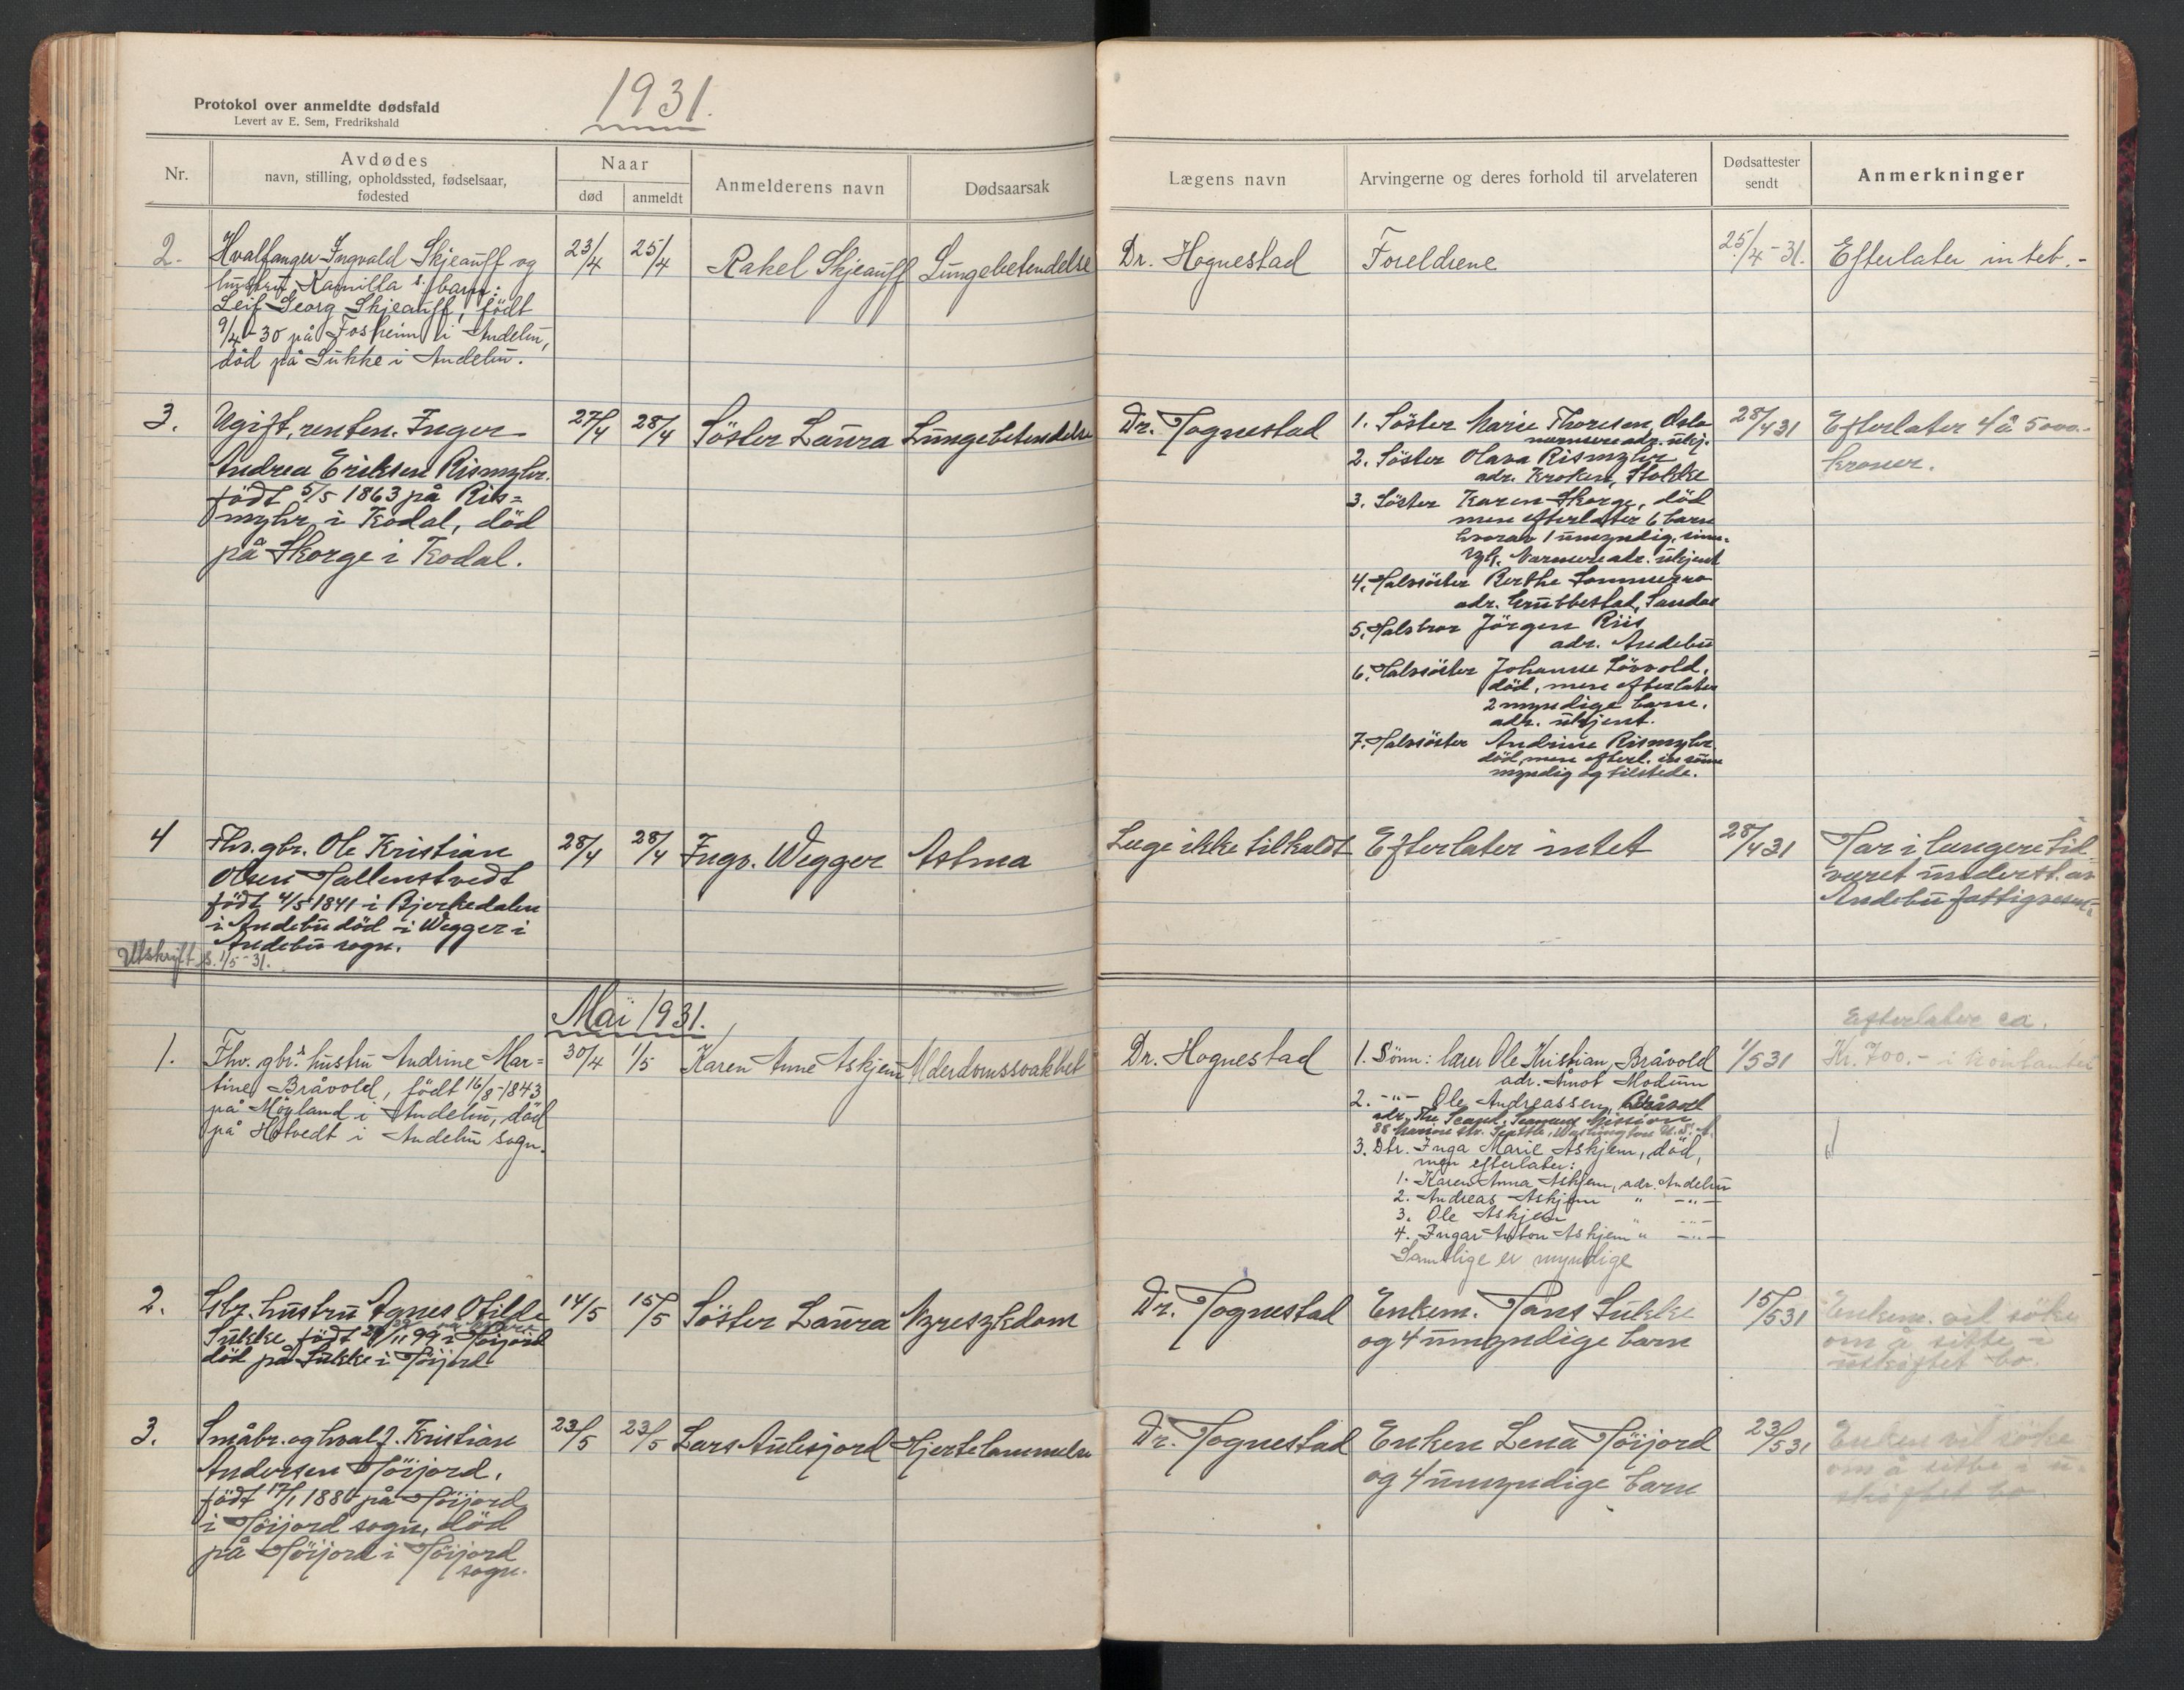 1931.
Protokol over anmeldte dødsfald
Levert av E. Sem, Fredrikshald
Nr.
Avdødes
navn, stilling, opholdssted, fødselsaar,
fødested
Naar
død
anmeldt
Anmelderens navn
Dødsaarsak
Lægens navn
Arvingerne og deres forhold til arvelateren
Dødsattester
sendt
Anmerkninger
2.
Hvalfanger Ingvald Skjeauff og
hustru Kamilla s. barn:
Leif Georg Skjeauff, født
9/4-30 på Fosheim i Andebu,
død på Sukke i Andebu.
23/4
25/4
Rakel Skjeauff
Lungebetendelse
Dr. Hognestad
Foreldrene
25/4-31.
Efterlater intet.-
3.
Ugift, renten. Inger
Andrea Eriksen Rismyhr.
født 5/5 1863 på Ris=
myhr i Kodal, død
på Skorge i Kodal.
27/4
28/4
Söster Laura
Lungebetendelse
Dr. Hognestad
1. Söster Marie Thoresen, Oslo
nærmere adr. ukj.
2. Söster Olava Rismyhr
adr. Kroken, Stokke
3. Söster Karen Skorge, död
men efterlater 6 barn
hvorav 1 umyndig, sinn-
syk. Nærmere adr. ukjent
4. Halvsöster Berthe Sommerro
adr. Grubbestad, Sandar
5. Halvbror Jörgen Riis
adr. Andebu
6. Halvsöster Johanne Lövvold,
död, men efterlater
2 myndige barn.
adr. ukjent.
7. Halvsöster Andrine Rismyhr
död, men efterl. en sönn
myndig og tilstede.
28/4 31
Efterlater 4 à 5000.-
kroner.
4
Fhv. gbr. Ole Kristian
Olsen Hallenstvedt
født 4/5 1841 i Bjerkedalen
i Andebu död i Wegger i
Andebu sogn.
28/4
28/4
Ingv. Wegger
Astma
Læge ikke tilkaldt
Efterlater intet
28/4 31
Har i lengere tid
været underst. av
Andebu fattigvesen.
Utskrift s. 1/5-31.
Mai 1931.
1.
Fhv. gbr.s hustru Andrine Mar=
tine Bråvold, født 16/8-1843
på Möyland i Andebu, död
på Hotvedt i Andebu sogn.
30/4
1/5
Karen Anne Askjem
Alderdomssvakhet
Dr. Hognestad
1. Sönn: lærer Ole Kristian Bråvold
adr. Åmot Modum
2. -"- Ole Andreassen Bråvol
adr. The Scand. Seamens Mission
88 Marion str. Seattle, Washington U.S.A.
3. Dtr. Inga Marie Askjem, död,
men efterlater:
1. Karen Anna Askjem, adr. Andebu
2. Andreas Askjem " -"-
3. Ole Askjem -"-
4. Ingar Anton Askjem " -"-
Samtlige er myndige
1/5 31
Efterlater ca.
Kr. 700.- i kontanter
2.
Gbr. hustru Agnes Otilde
Sukke, födt 29/11 99 i Höijord
död på Sukke i Höijord
14/5
15/5
Söster Laura
Nyresykdom
Dr. Hognestad
Enkem. Hans Sukke
og 4 umyndige barn
15/5 31
Enkem. vil söke
om å sitte i
uskiftet bo.
3.
Småbr. og hvalf. Kristian
Andersen Höijord,
födt 17/1 1880 på Höijord
i Höijord sogn, död
på Höijord i Höijord
sogn.
23/5
23/5
Lars Aulesjord
Hjertelammelse
Dr. Hognestad
Enken Lena Höijord
og 4 umyndige barn
23/5 31
Enken vil söke
om å sitte i u-
skiftet bo.